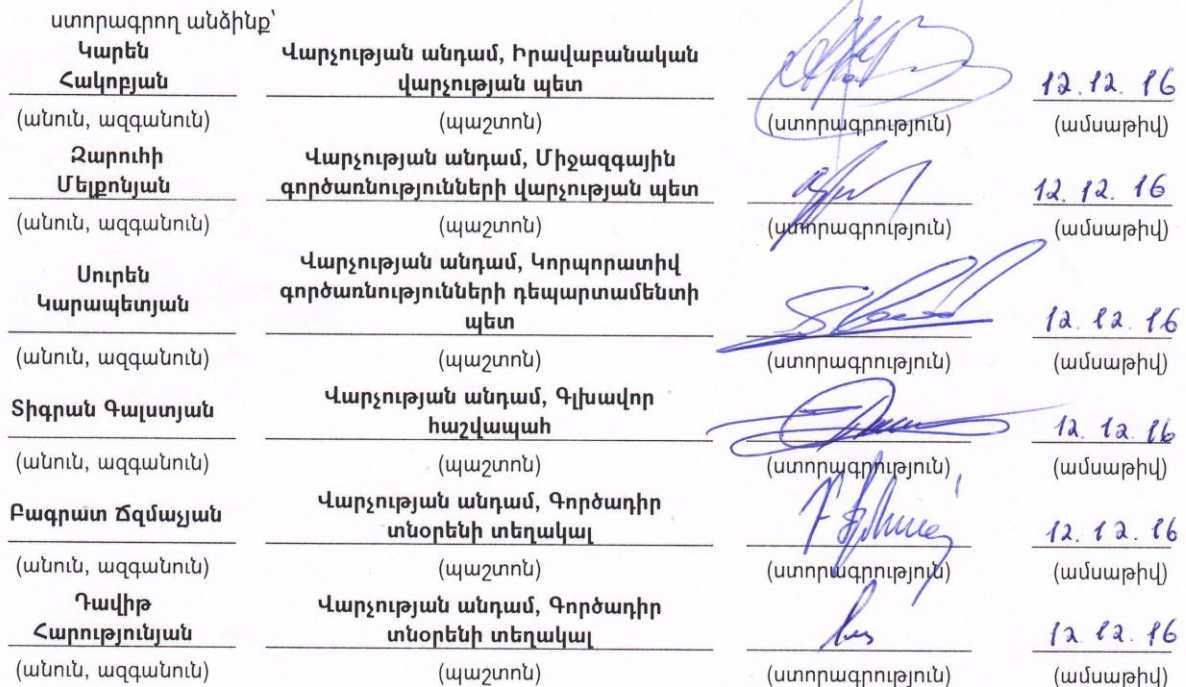 ստորագրող անձինք՝
Կարեն Հակոբյան
Վարչության անդամ, Իրավաբանական վարչության պետ
12.12.16
(անուն, ազգանուն) (պաշտոն) (ստորագրություն) (ամսաթիվ)
Զարուհի Մելքոնյան
Վարչության անդամ, Միջազգային գործառնությունների վարչության պետ
12.12.16
(անուն, ազգանուն) (պաշտոն) (ստորագրություն) (ամսաթիվ)
Սուրեն Կարապետյան
Վարչության անդամ, Կորպորատիվ գործառնությունների դեպարտամենտի պետ
12.12.16
(անուն, ազգանուն) (պաշտոն) (ստորագրություն) (ամսաթիվ)
Տիգրան Գալստյան
Վարչության անդամ, Գլխավոր հաշվապահ
12.12.16
(անուն, ազգանուն) (պաշտոն) (ստորագրություն) (ամսաթիվ)
Բագրատ Ճզմաչյան
Վարչության անդամ, Գործադիր տնօրենի տեղակալ
12.12.16
(անուն, ազգանուն) (պաշտոն) (ստորագրություն) (ամսաթիվ)
Դավիթ Հարությունյան
Վարչության անդամ, Գործադիր տնօրենի տեղակալ
12.12.16
(անուն, ազգանուն) (պաշտոն) (ստորագրություն) (ամսաթիվ)